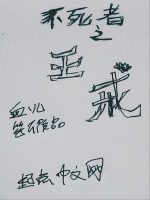 不死者
之
王
戒
血儿
笔下作品
起点中文网